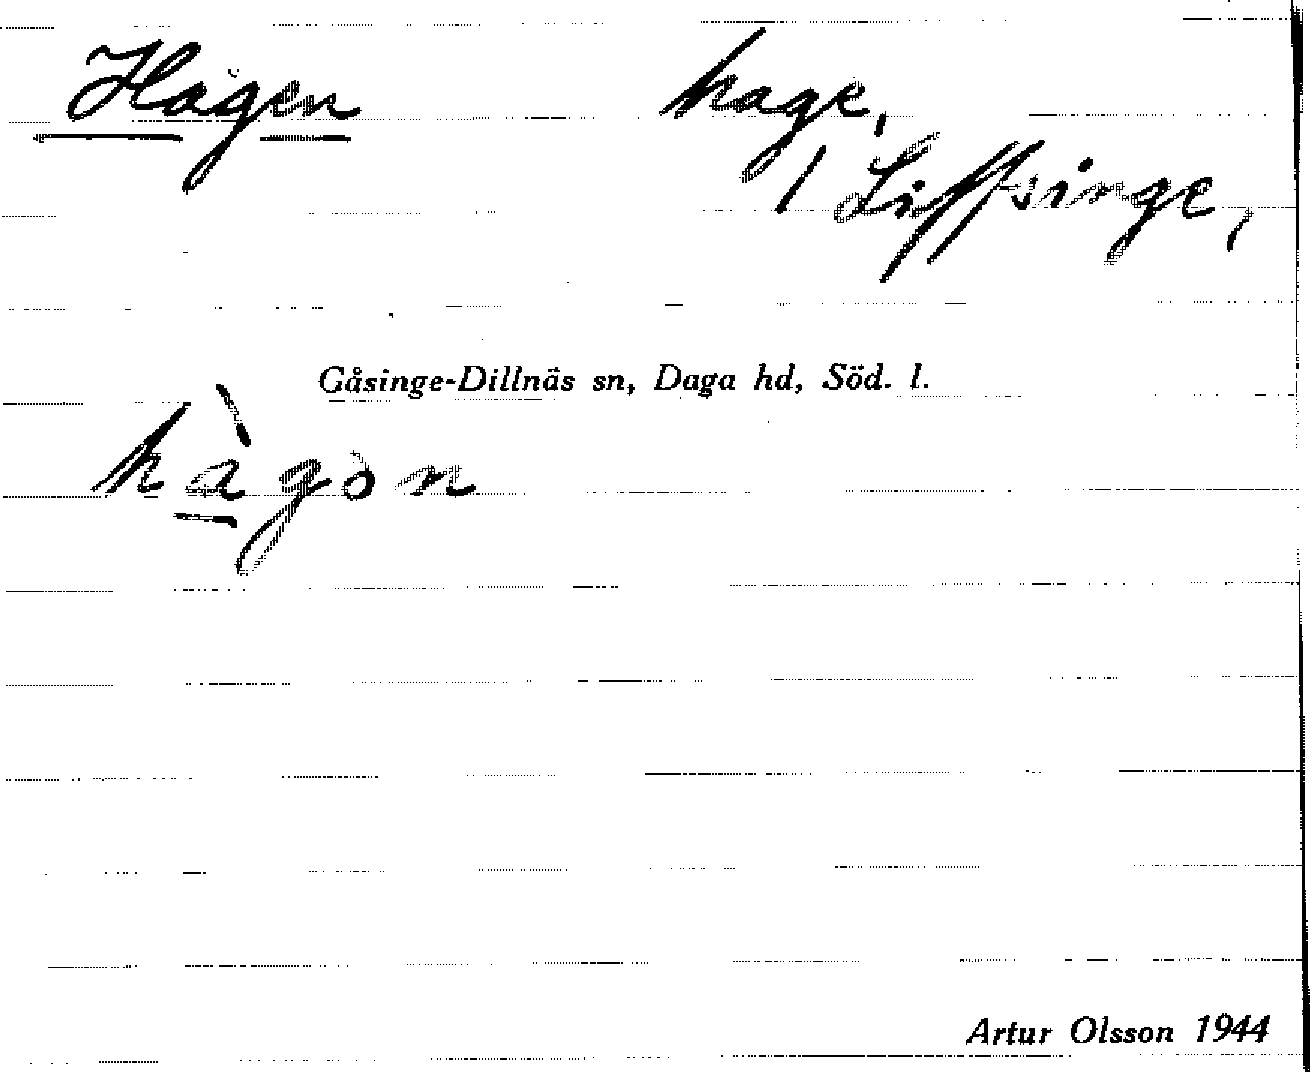 Hagen
hage,
1 Liffsinge,
Gåsinge-Dillnäs sn, Daga hd, Söd. l.
hàgòn
Artur Olsson 1944